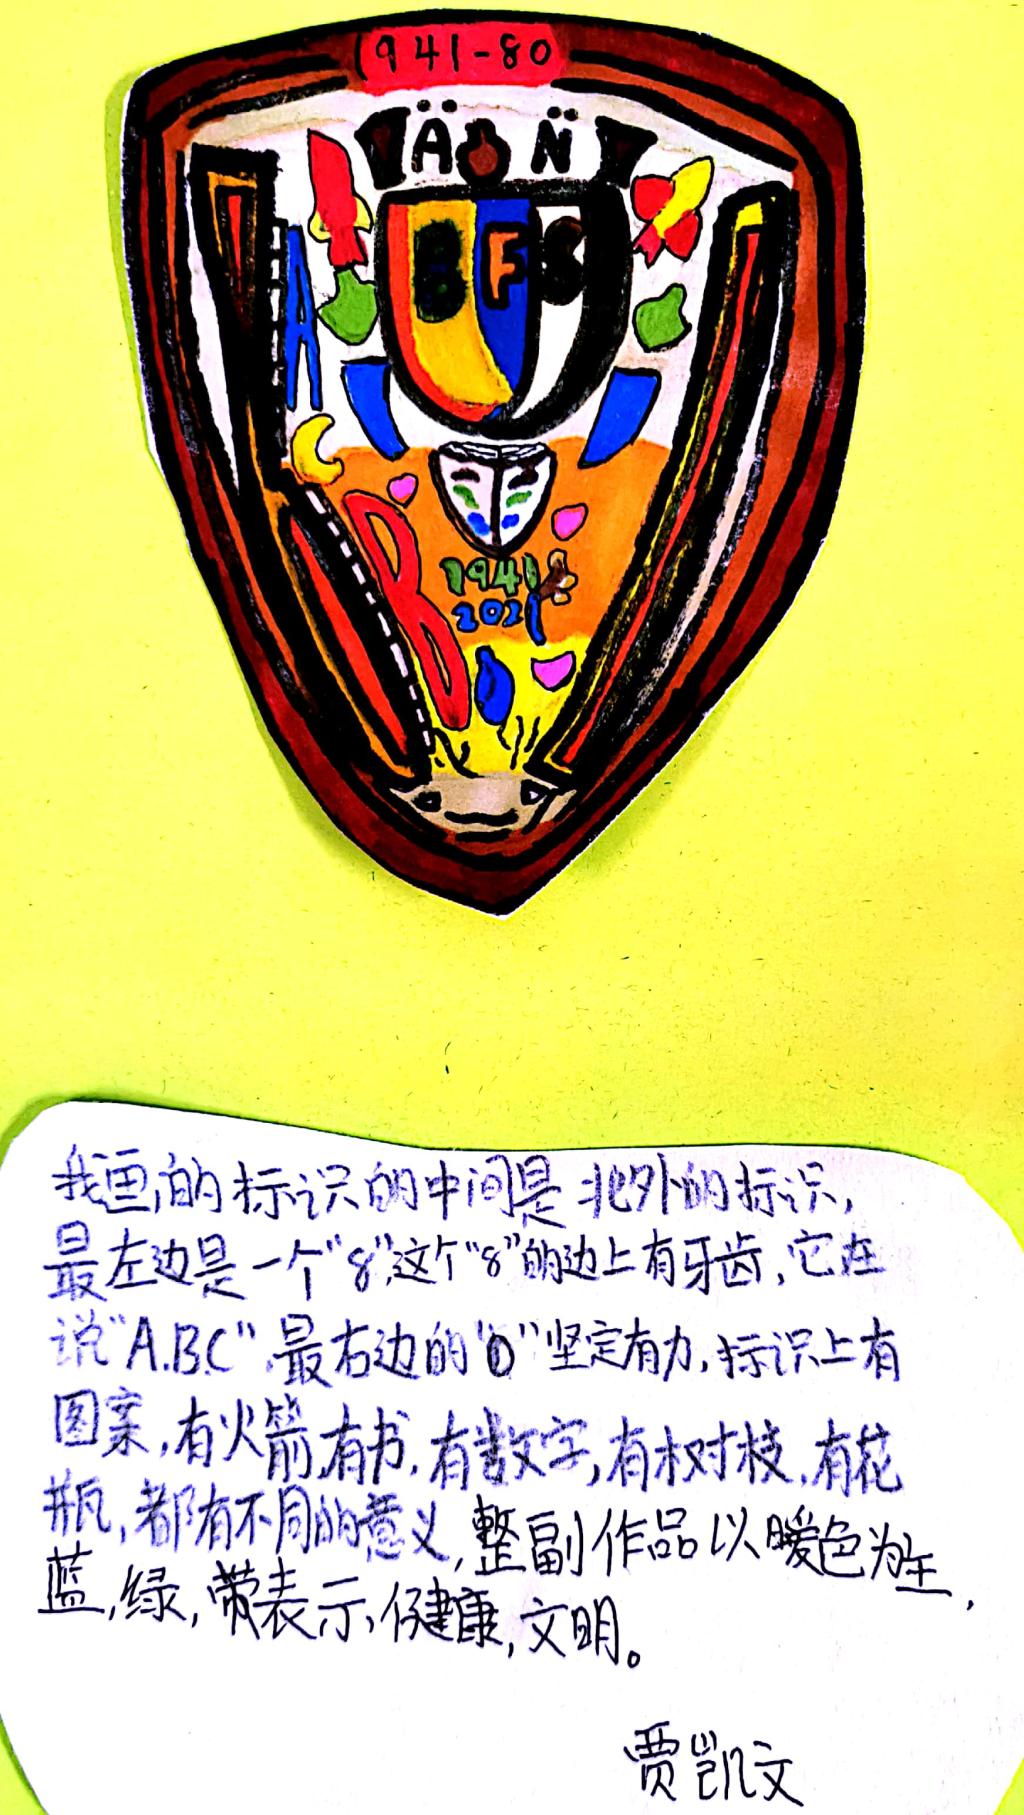 1941-80
Ä Ö N̈
B F S
A
B
1941
2021
我画的标识的中间是北外的标识,
最左边是一个“8”,这个“8”的边上有牙齿,它在
说“A.B.C”,最右边的“0”坚定有力,标识上有
图案,有火箭,有书,有数字,有树枝,有花
瓶,都有不同的意义,整副作品以暖色为主,
蓝,绿,带表示,健康,文明。
贾凯文